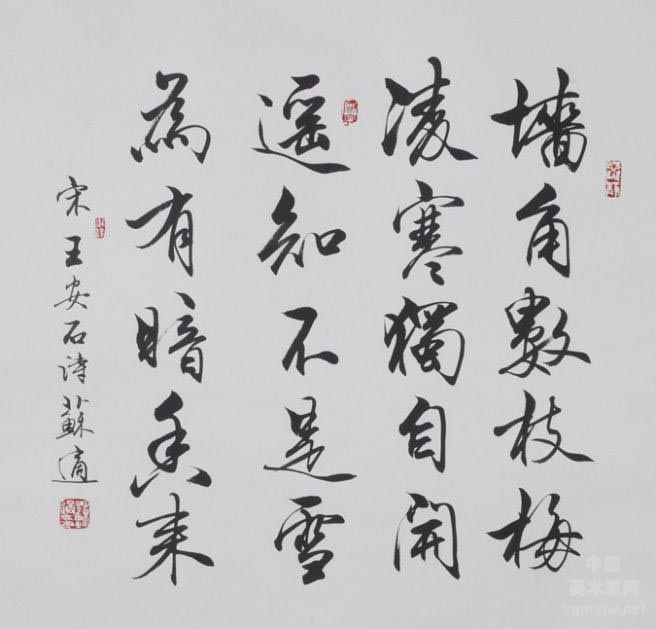 墻角數枝梅
凌寒獨自開
遥知不是雪
為有暗香来
宋王安石诗蘇適
中国
美术家网
zgmsjw.net